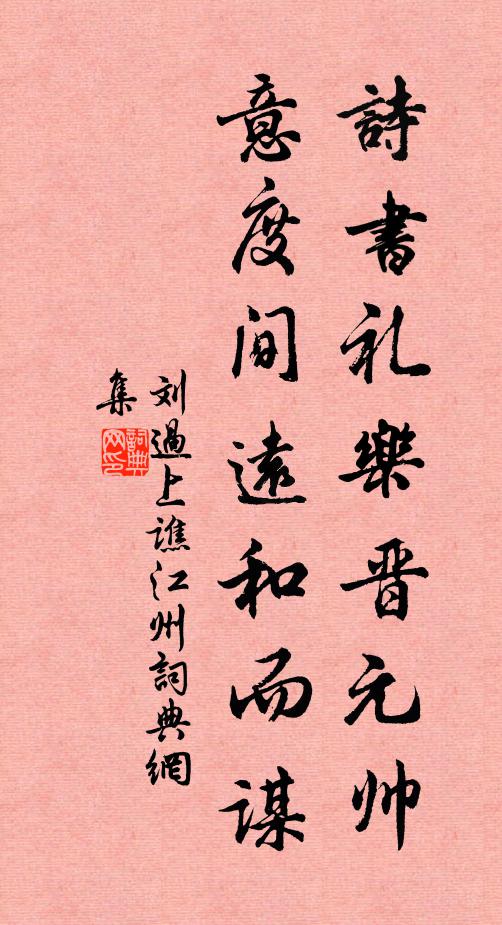 詩書礼樂晋元帅
意度间遠和而谋
刘過上譙江州詞典網
集
詞典网印